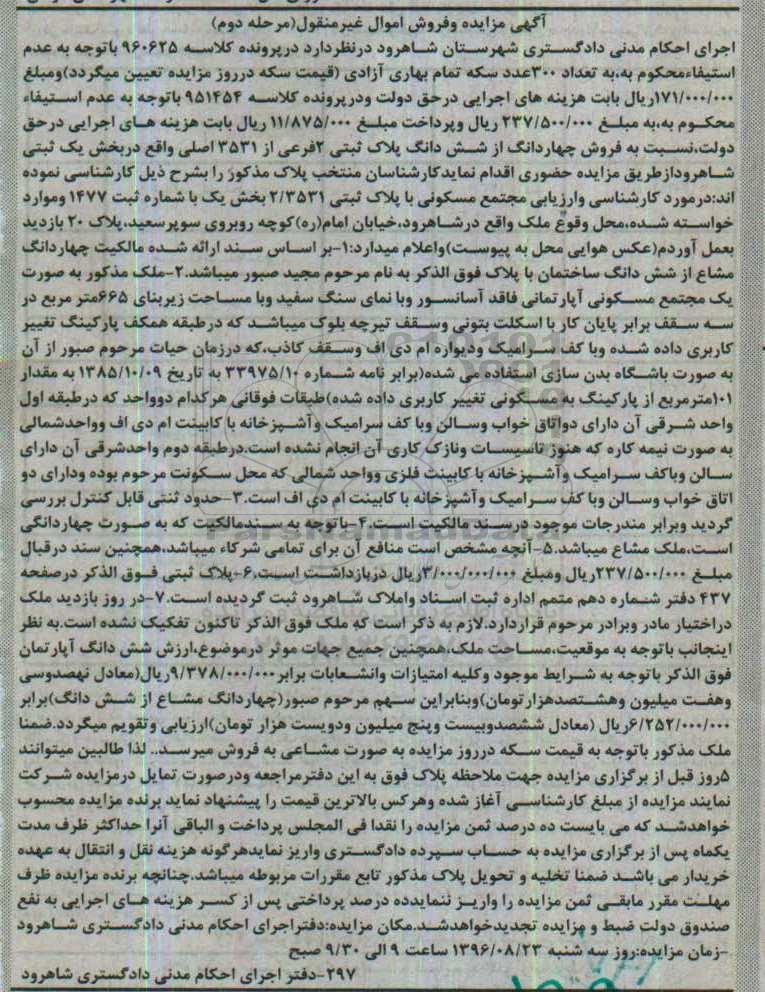 آگهی مزایده وفروش اموال غیرمنقول(مرحله دوم)
اجرای احکام مدنی دادگستری شهرستان شاهرود درنظردارد درپرونده کلاسه ۹۶۰۶۲۵ باتوجه به عدم
استیفاءمحکوم به،به تعداد ۳۰۰عدد سکه تمام بهاری آزادی (قیمت سکه درروز مزایده تعیین میگردد)ومبلغ
۱۷۱/۰۰۰/۰۰۰ریال بابت هزینه های اجرایی درحق دولت ودرپرونده کلاسه ۹۵۱۴۵۴ باتوجه به عدم استیفاء
محکوم به،به مبلغ ۲۳۷/۵۰۰/۰۰۰ ریال وپرداخت مبلغ ۱۱/۸۷۵/۰۰۰ ریال بابت هزینه های اجرایی درحق
دولت،نسبت به فروش چهاردانگ از شش دانگ پلاک ثبتی ۲فرعی از ۳۵۳۱ اصلی واقع دربخش یک ثبتی
شاهرودازطریق مزایده حضوری اقدام نمایدکارشناسان منتخب پلاک مذکور را بشرح ذیل کارشناسی نموده
اند:درمورد کارشناسی وارزیابی مجتمع مسکونی با پلاک ثبتی ۲/۳۵۳۱ بخش یک با شماره ثبت ۱۴۷۷ وموارد
خواسته شده،محل وقوع ملک واقع درشاهرود،خیابان امام(ره)کوچه روبروی سوپرسعید،پلاک ۲۰ بازدید
بعمل آوردم(عکس هوایی محل به پیوست)واعلام میدارد:۱-بر اساس سند ارائه شده مالکیت چهاردانگ
مشاع از شش دانگ ساختمان با پلاک فوق الذکر به نام مرحوم مجید صبور میباشد.۲-ملک مذکور به صورت
یک مجتمع مسکونی آپارتمانی فاقد آسانسور وبا نمای سنگ سفید وبا مساحت زیربنای ۶۶۵متر مربع در
سه سقف برابر پایان کار با اسکلت بتونی وسقف تیرچه بلوک میباشد که درطبقه همکف پارکینگ تغییر
کاربری داده شده وبا کف سرامیک ودیواره ام دی اف وسقف کاذب،که درزمان حیات مرحوم صبور از آن
به صورت باشگاه بدن سازی استفاده می شده(برابر نامه شماره ۳۳۹۷۵/۱۰ به تاریخ ۱۳۸۵/۱۰/۰۹ به مقدار
۱۰۱مترمربع از پارکینگ به مسکونی تغییر کاربری داده شده)طبقات فوقانی هرکدام دوواحد که درطبقه اول
واحد شرقی آن دارای دواتاق خواب وسالن وبا کف سرامیک وآشپزخانه با کابینت ام دی اف وواحدشمالی
به صورت نیمه کاره که هنوز تاسیسات ونازک کاری آن انجام نشده است.درطبقه دوم واحدشرقی آن دارای
سالن وباکف سرامیک وآشپزخانه با کابینت فلزی وواحد شمالی که محل سکونت مرحوم بوده ودارای دو
اتاق خواب وسالن وبا کف سرامیک وآشپزخانه با کابینت ام دی اف است.۳-حدود ثنتی قابل کنترل بررسی
گردید وبرابر مندرجات موجود درسند مالکیت است.۴-باتوجه به سندمالکیت که به صورت چهاردانگی
است،ملک مشاع میباشد.۵-آنچه مشخص است منافع آن برای تمامی شرکاء میباشد،همچنین سند درقبال
مبلغ ۲۳۷/۵۰۰/۰۰۰ریال ومبلغ ۳/۰۰۰/۰۰۰/۰۰۰ریال دربازداشت است.۶-پلاک ثبتی فوق الذکر درصفحه
۴۳۷ دفتر شماره دهم متمم اداره ثبت اسناد واملاک شاهرود ثبت گردیده است.۷-در روز بازدید ملک
دراختیار مادر وبرادر مرحوم قراردارد.لازم به ذکر است که ملک فوق الذکر تاکنون تفکیک نشده است.به نظر
اینجانب باتوجه به موقعیت،مساحت ملک،همچنین جمیع جهات موثر درموضوع،ارزش شش دانگ آپارتمان
فوق الذکر باتوجه به شرایط موجود وکلیه امتیازات وانشعابات برابر۹/۳۷۸/۰۰۰/۰۰۰ریال(معادل نهصدوسی
وهفت میلیون وهشتصدهزارتومان)وبنابراین سهم مرحوم صبور(چهاردانگ مشاع از شش دانگ)برابر
۶/۲۵۲/۰۰۰/۰۰۰ریال (معادل ششصدوبیست وپنج میلیون ودویست هزار تومان)ارزیابی وتقویم میگردد.ضمنا
ملک مذکور باتوجه به قیمت سکه درروز مزایده به صورت مشاعی به فروش میرسد.. لذا طالبین میتوانند
۵روز قبل از برگزاری مزایده جهت ملاحظه پلاک فوق به این دفترمراجعه ودرصورت تمایل درمزایده شرکت
نمایند مزایده از مبلغ کارشناسی آغاز شده وهرکس بالاترین قیمت را پیشنهاد نماید برنده مزایده محسوب
خواهدشد که می بایست ده درصد ثمن مزایده را نقدا فی المجلس پرداخت و الباقی آنرا حداکثر ظرف مدت
یکماه پس از برگزاری مزایده به حساب سپرده دادگستری واریز نمایدهرگونه هزینه نقل و انتقال به عهده
خریدار می باشد ضمنا تخلیه و تحویل پلاک مذکور تابع مقررات مربوطه میباشد.چنانچه برنده مزایده ظرف
مهلت مقرر مابقی ثمن مزایده را واریز ننمایدده درصد پرداختی پس از کسر هزینه های اجرایی به نفع
صندوق دولت ضبط و مزایده تجدیدخواهدشد.مکان مزایده:دفتراجرای احکام مدنی دادگستری شاهرود
-زمان مزایده:روز سه شنبه ۱۳۹۶/۰۸/۲۳ ساعت ۹ الی ۹/۳۰ صبح
۲۹۷-دفتر اجرای احکام مدنی دادگستری شاهرود